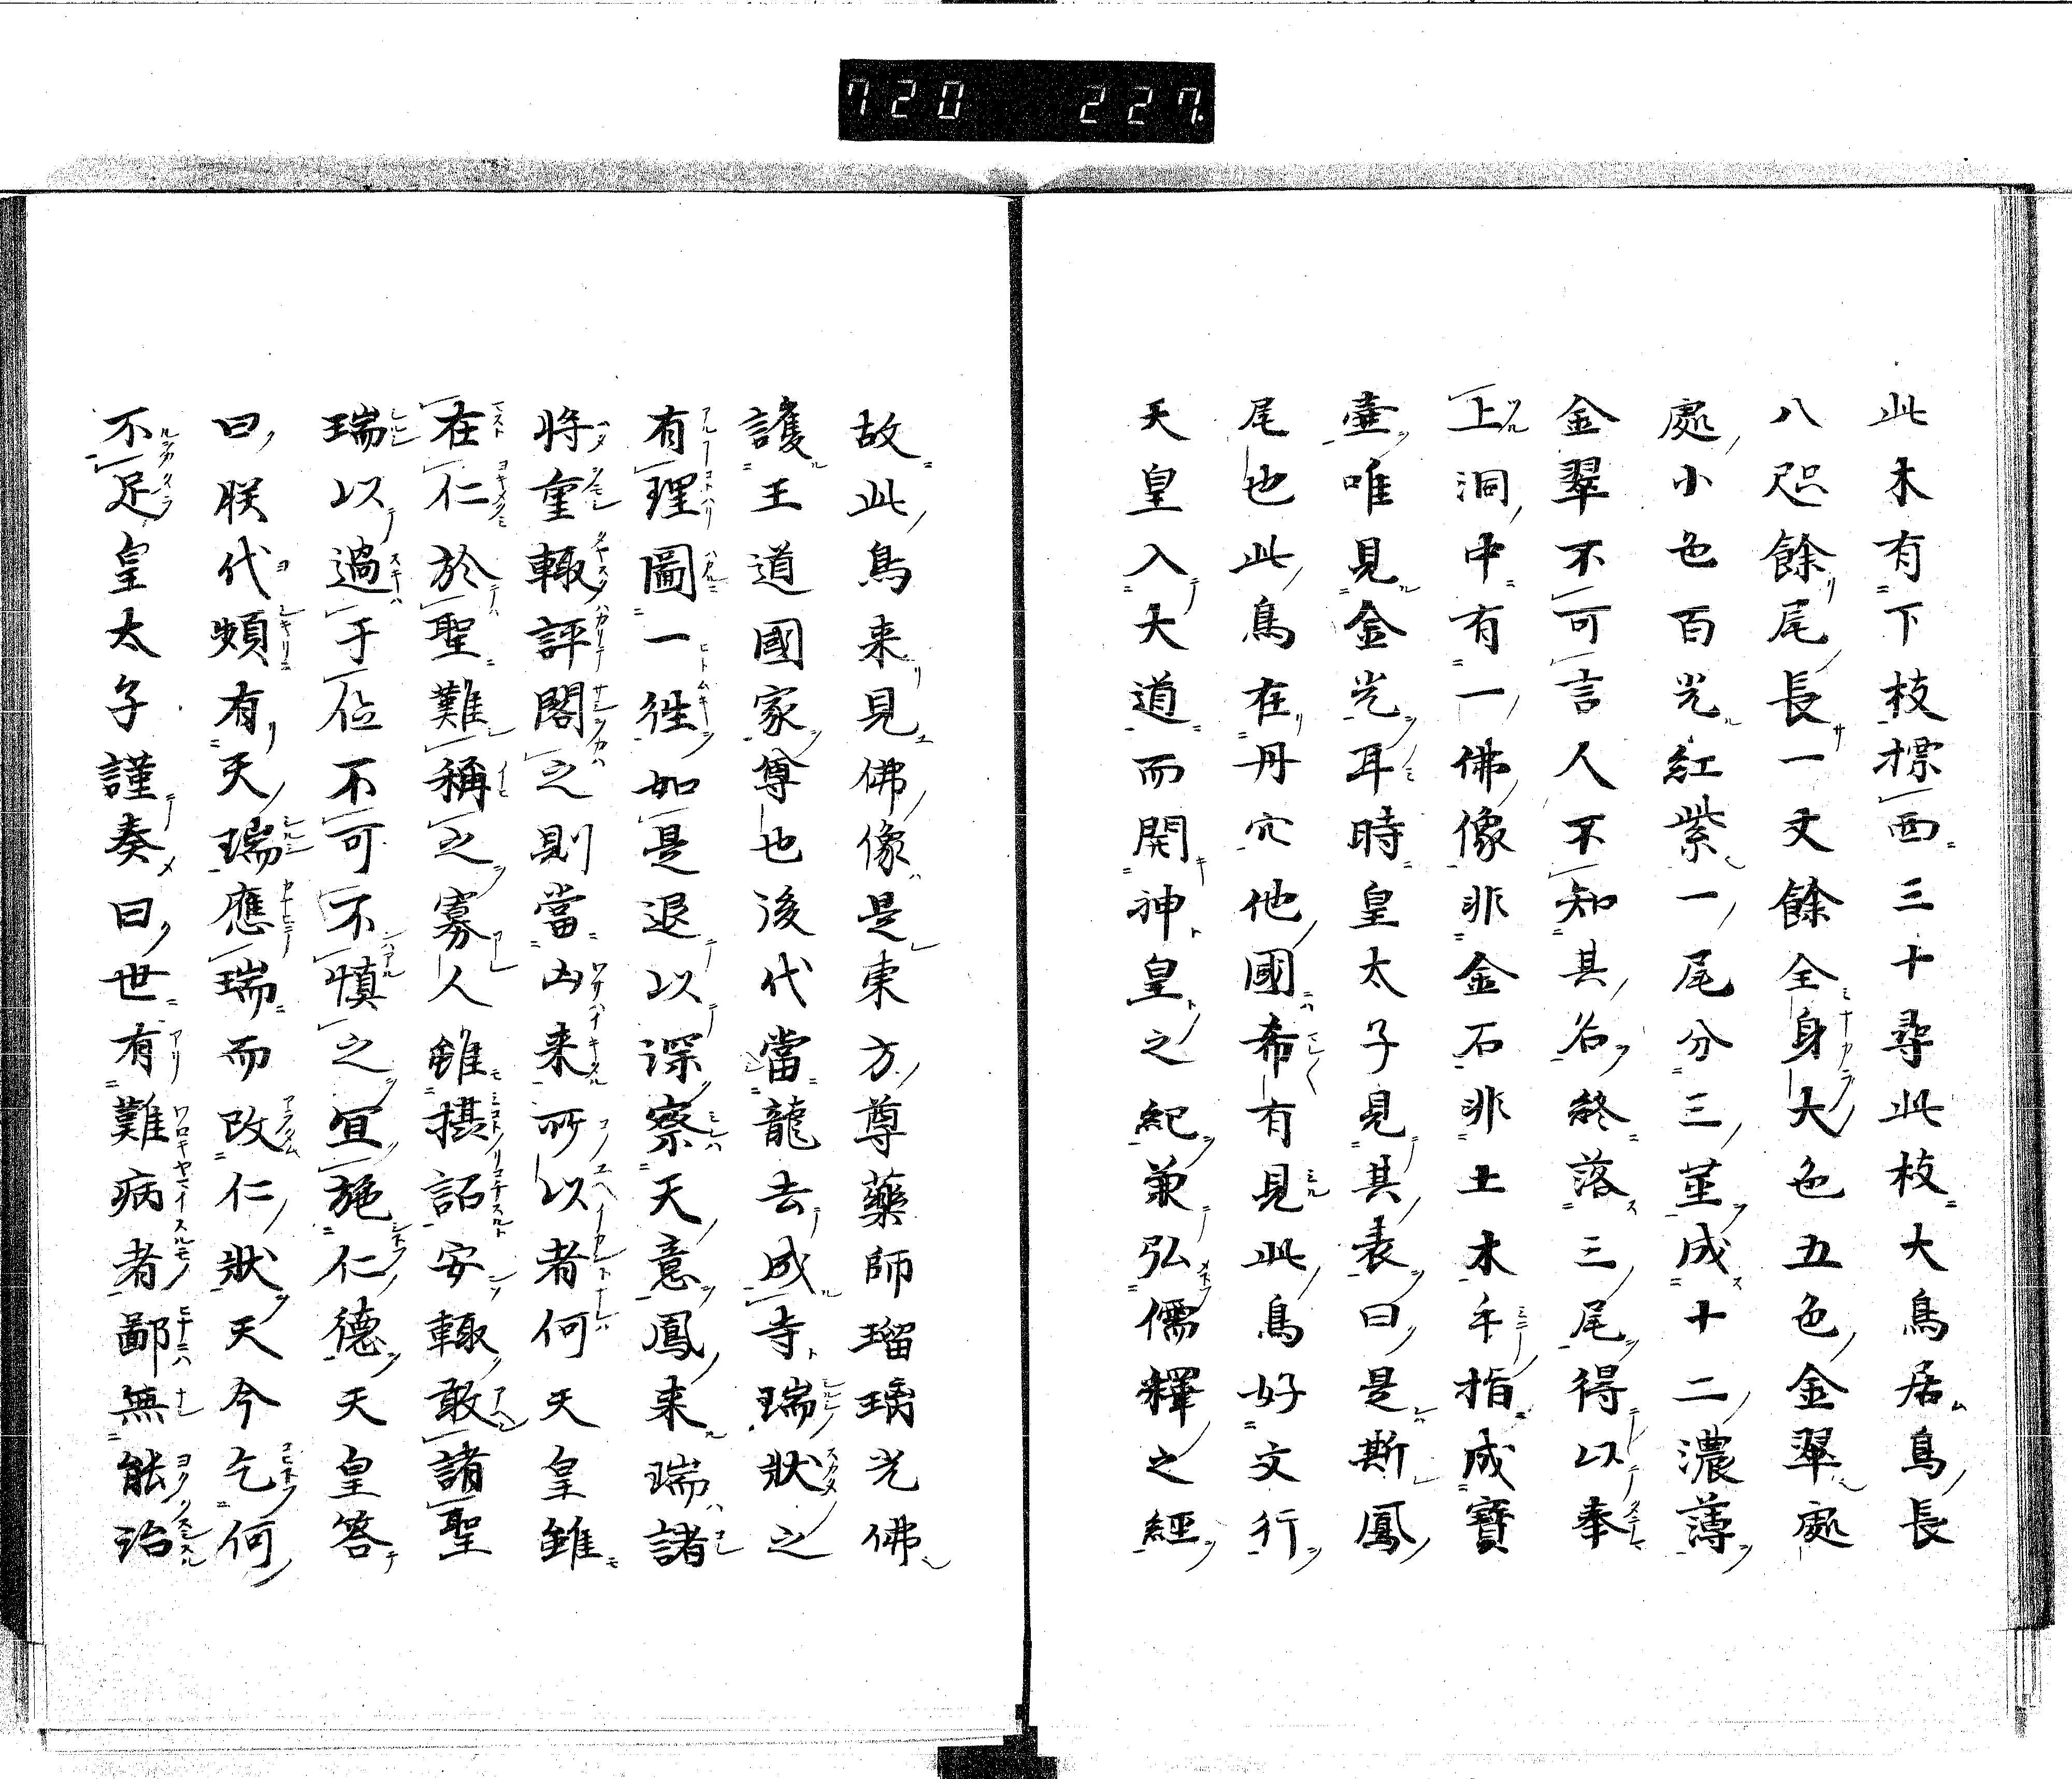 720 227
此木有下枝標西三十尋此枝大鳥居鳥長
八咫餘尾長一丈餘全身大色五色金翠處
處小色百光紅紫一尾分三莖成十二濃薄
金翠不可言人不知其名終落三尾得以奉
上洞中有一佛像非金石非土木手指成寶
壷唯見金光耳時皇太子見其表曰是斯鳳
尾也此鳥在丹穴他國希有見此鳥好文行
天皇入大道而開神皇之紀兼弘儒釋之經
故此鳥来見佛像是東方尊藥師瑠璃光佛
護王道國家尊也後代當龍去成寺瑞狀之
有理圖一徃如是退以深察天意鳳来瑞諸
将重輙評閣之則當凶来所以者何天皇雖
在仁於聖難稱之寡人雖攝詔安輙敢諸聖
瑞以過于位不可不慎之宜施仁德天皇答
曰朕代頻有天瑞應瑞而改仁狀天今乞何
不足皇太子謹奏曰世有難病者鄙無能治